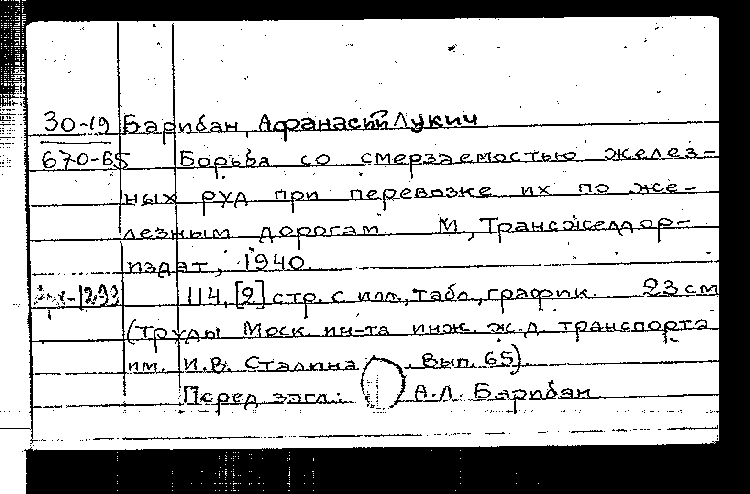 30-19 Барибан, Афанасий Лукич
670-65 Борьба со смерзаемостью желез-
ных руд при перевозке их по же-
лезным дорогам М, Трансжелдор-
издат, 1940.
114, [2] стр. с илл, табл, график. 23 см
(Труды Моск. ин-та инж. ж.д. транспорта
им. И.В. Сталина Вып. 65)
Перед загл.: А.Л. Барибан